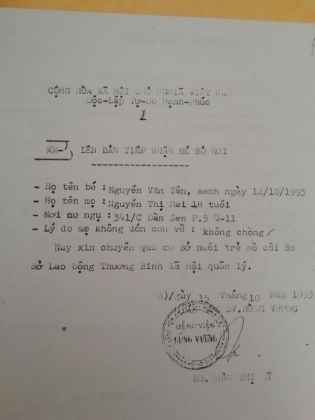 CỘNG HÒA XÃ HỘI CHỦ NGHĨA VIỆT NAM
Độc-Lập Tự-Do Hạnh-Phúc
BIÊN BẢN TIẾP NHẬN BÉ BỎ RƠI
- Họ tên bé : Nguyễn Văn Tân, sanh ngày 12/10/1993
- Họ tên mẹ : Nguyễn Thị Mai 18 tuổi
- Nơi cư ngụ : 341/C Đầm Sen P.5 Q-11
- Lý do mẹ không đón con về : không chồng/
Nay xin chuyển qua cơ sở nuôi trẻ mồ côi do
Sở Lao Động Thương Binh Xã Hội quản lý.
Ngày 15 Tháng 10 năm 1993
BV.HÙNG VƯƠNG
BỆNH VIỆN
HÙNG VƯƠNG
BS. THỊ